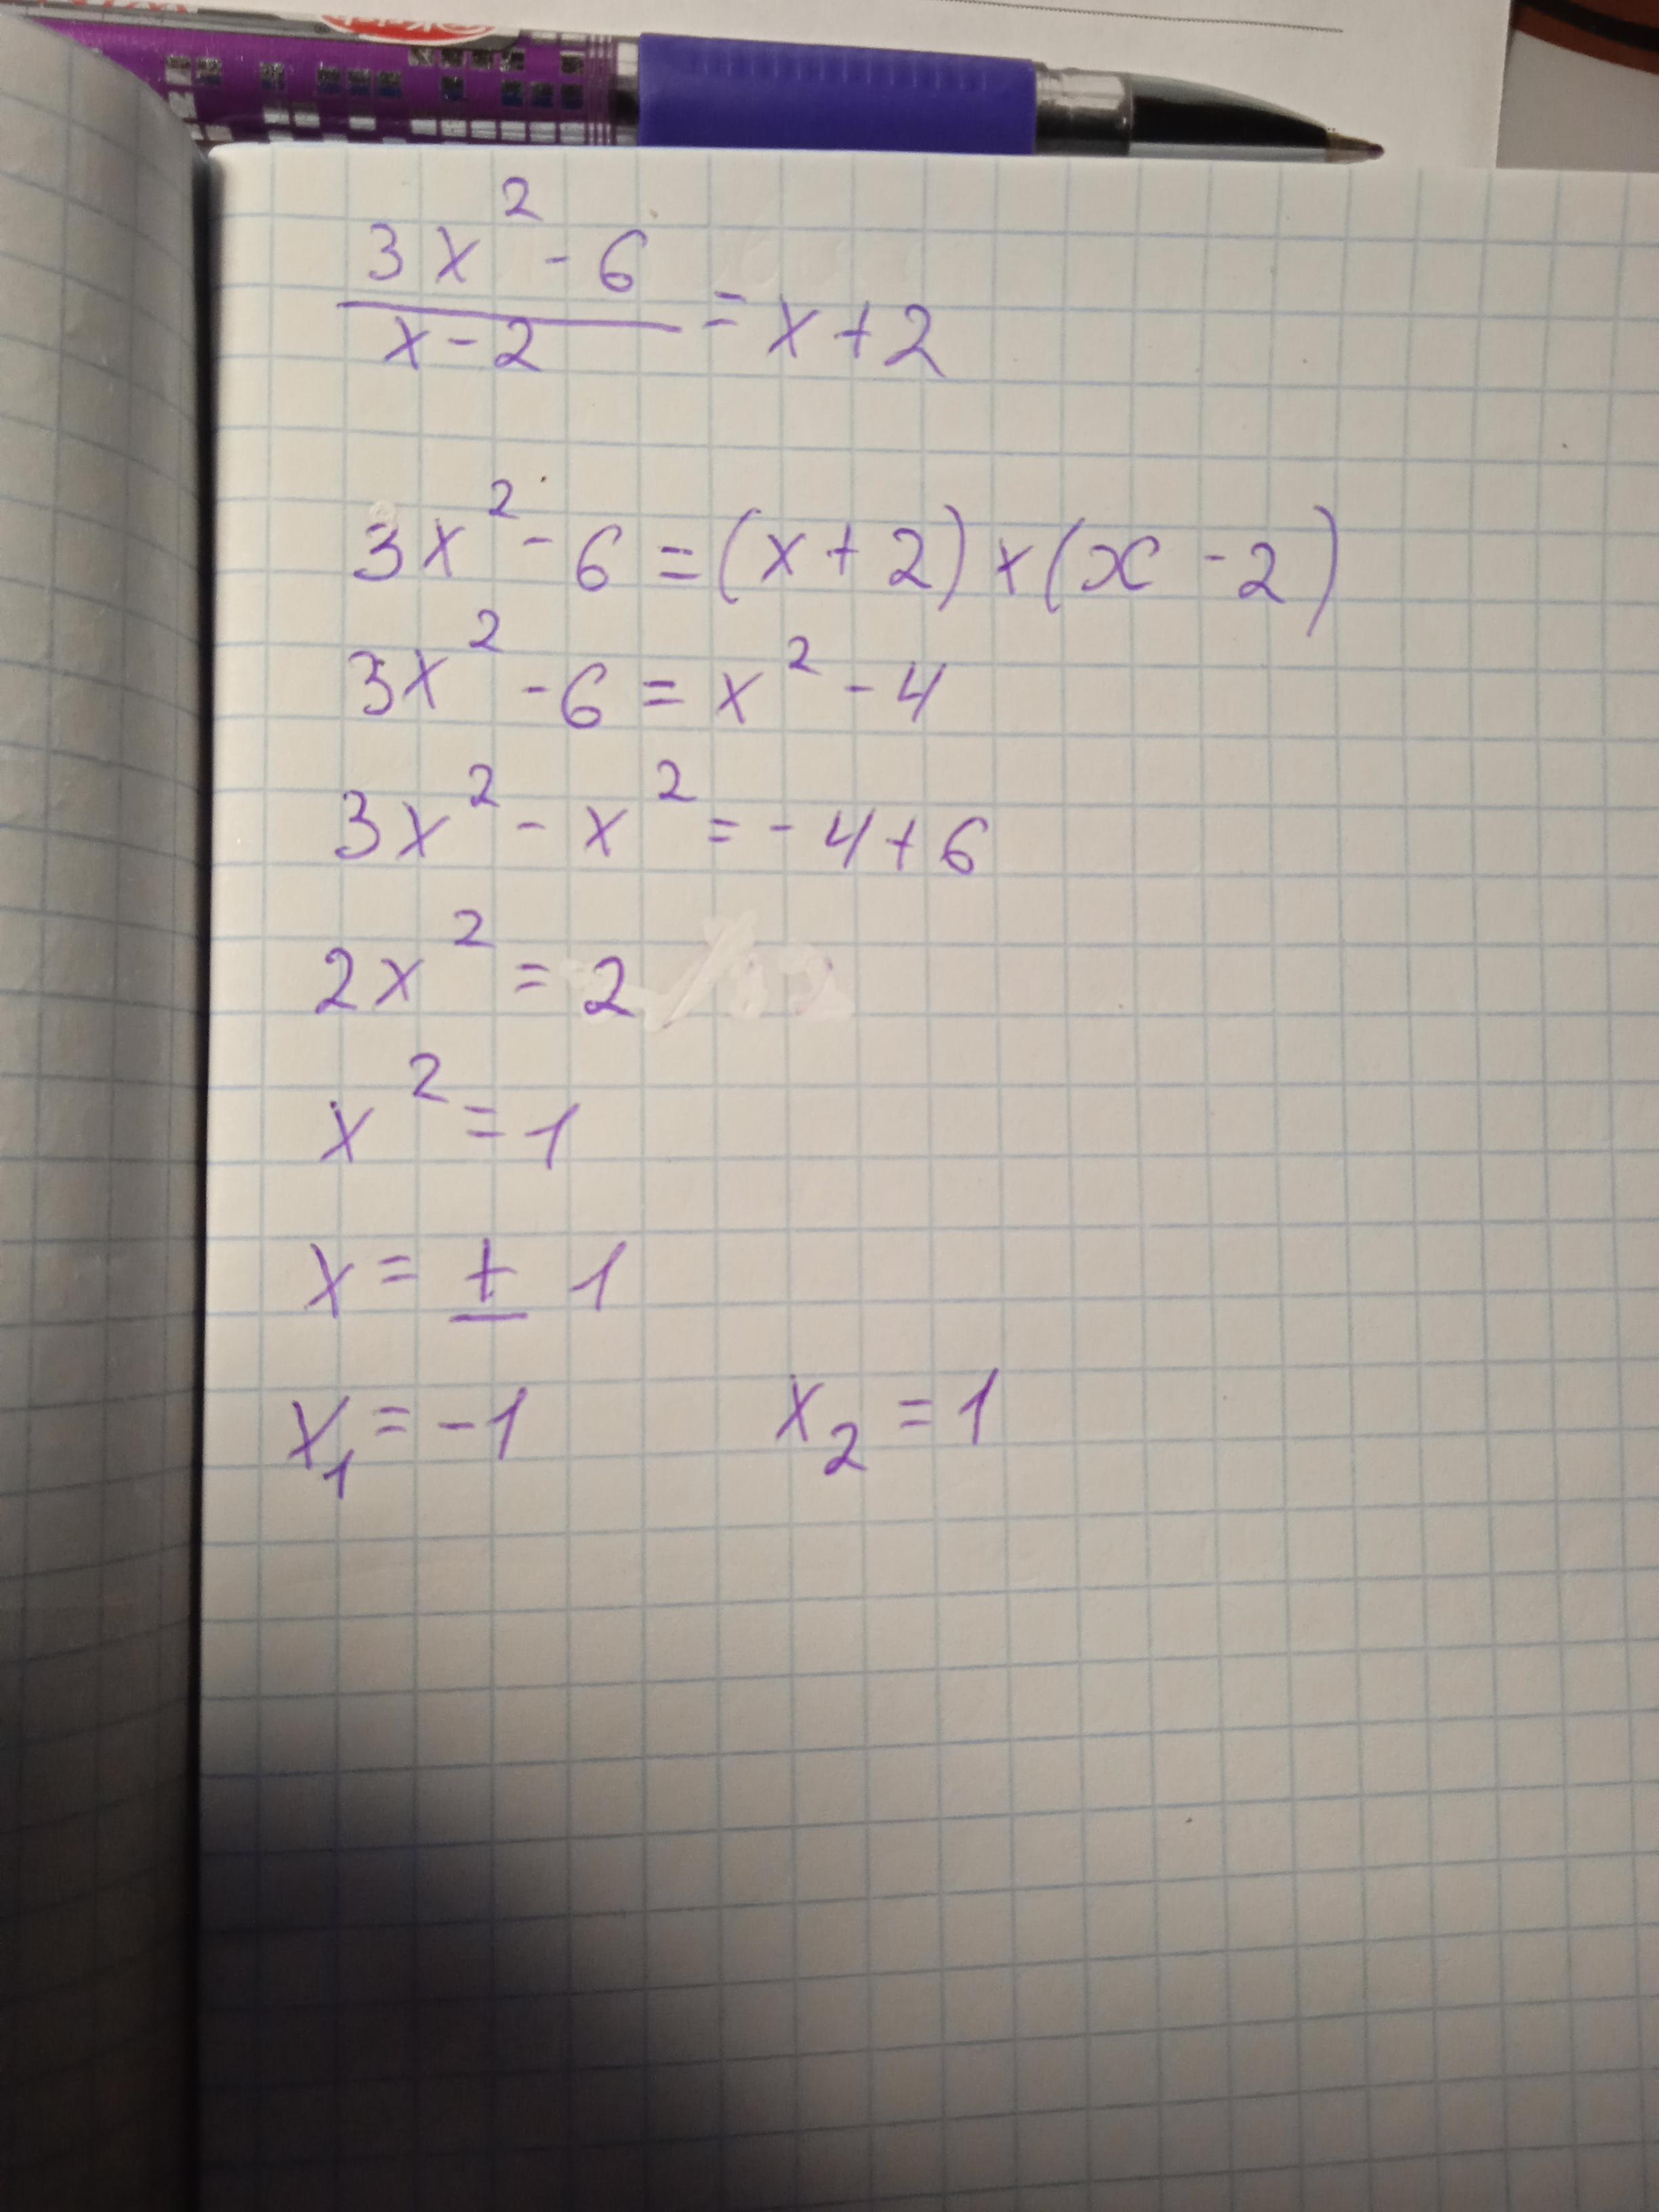 3x² - 6
x - 2
= x + 2
3x² - 6 = (x + 2) × (x - 2)
3x² - 6 = x² - 4
3x² - x² = - 4 + 6
2x² = 2
x² = 1
x = ± 1
x₁ = -1 x₂ = 1